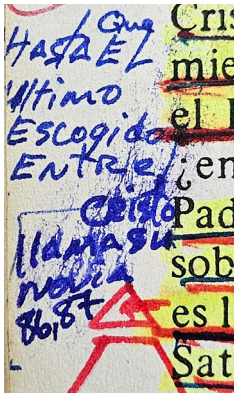 ¡ Que
HASTA EL
Ultimo
Escogido
ENTRE
Cristo
llama su
novia
86,87
Cris
mie
el
¿en
Pad
sob
es l
Sat